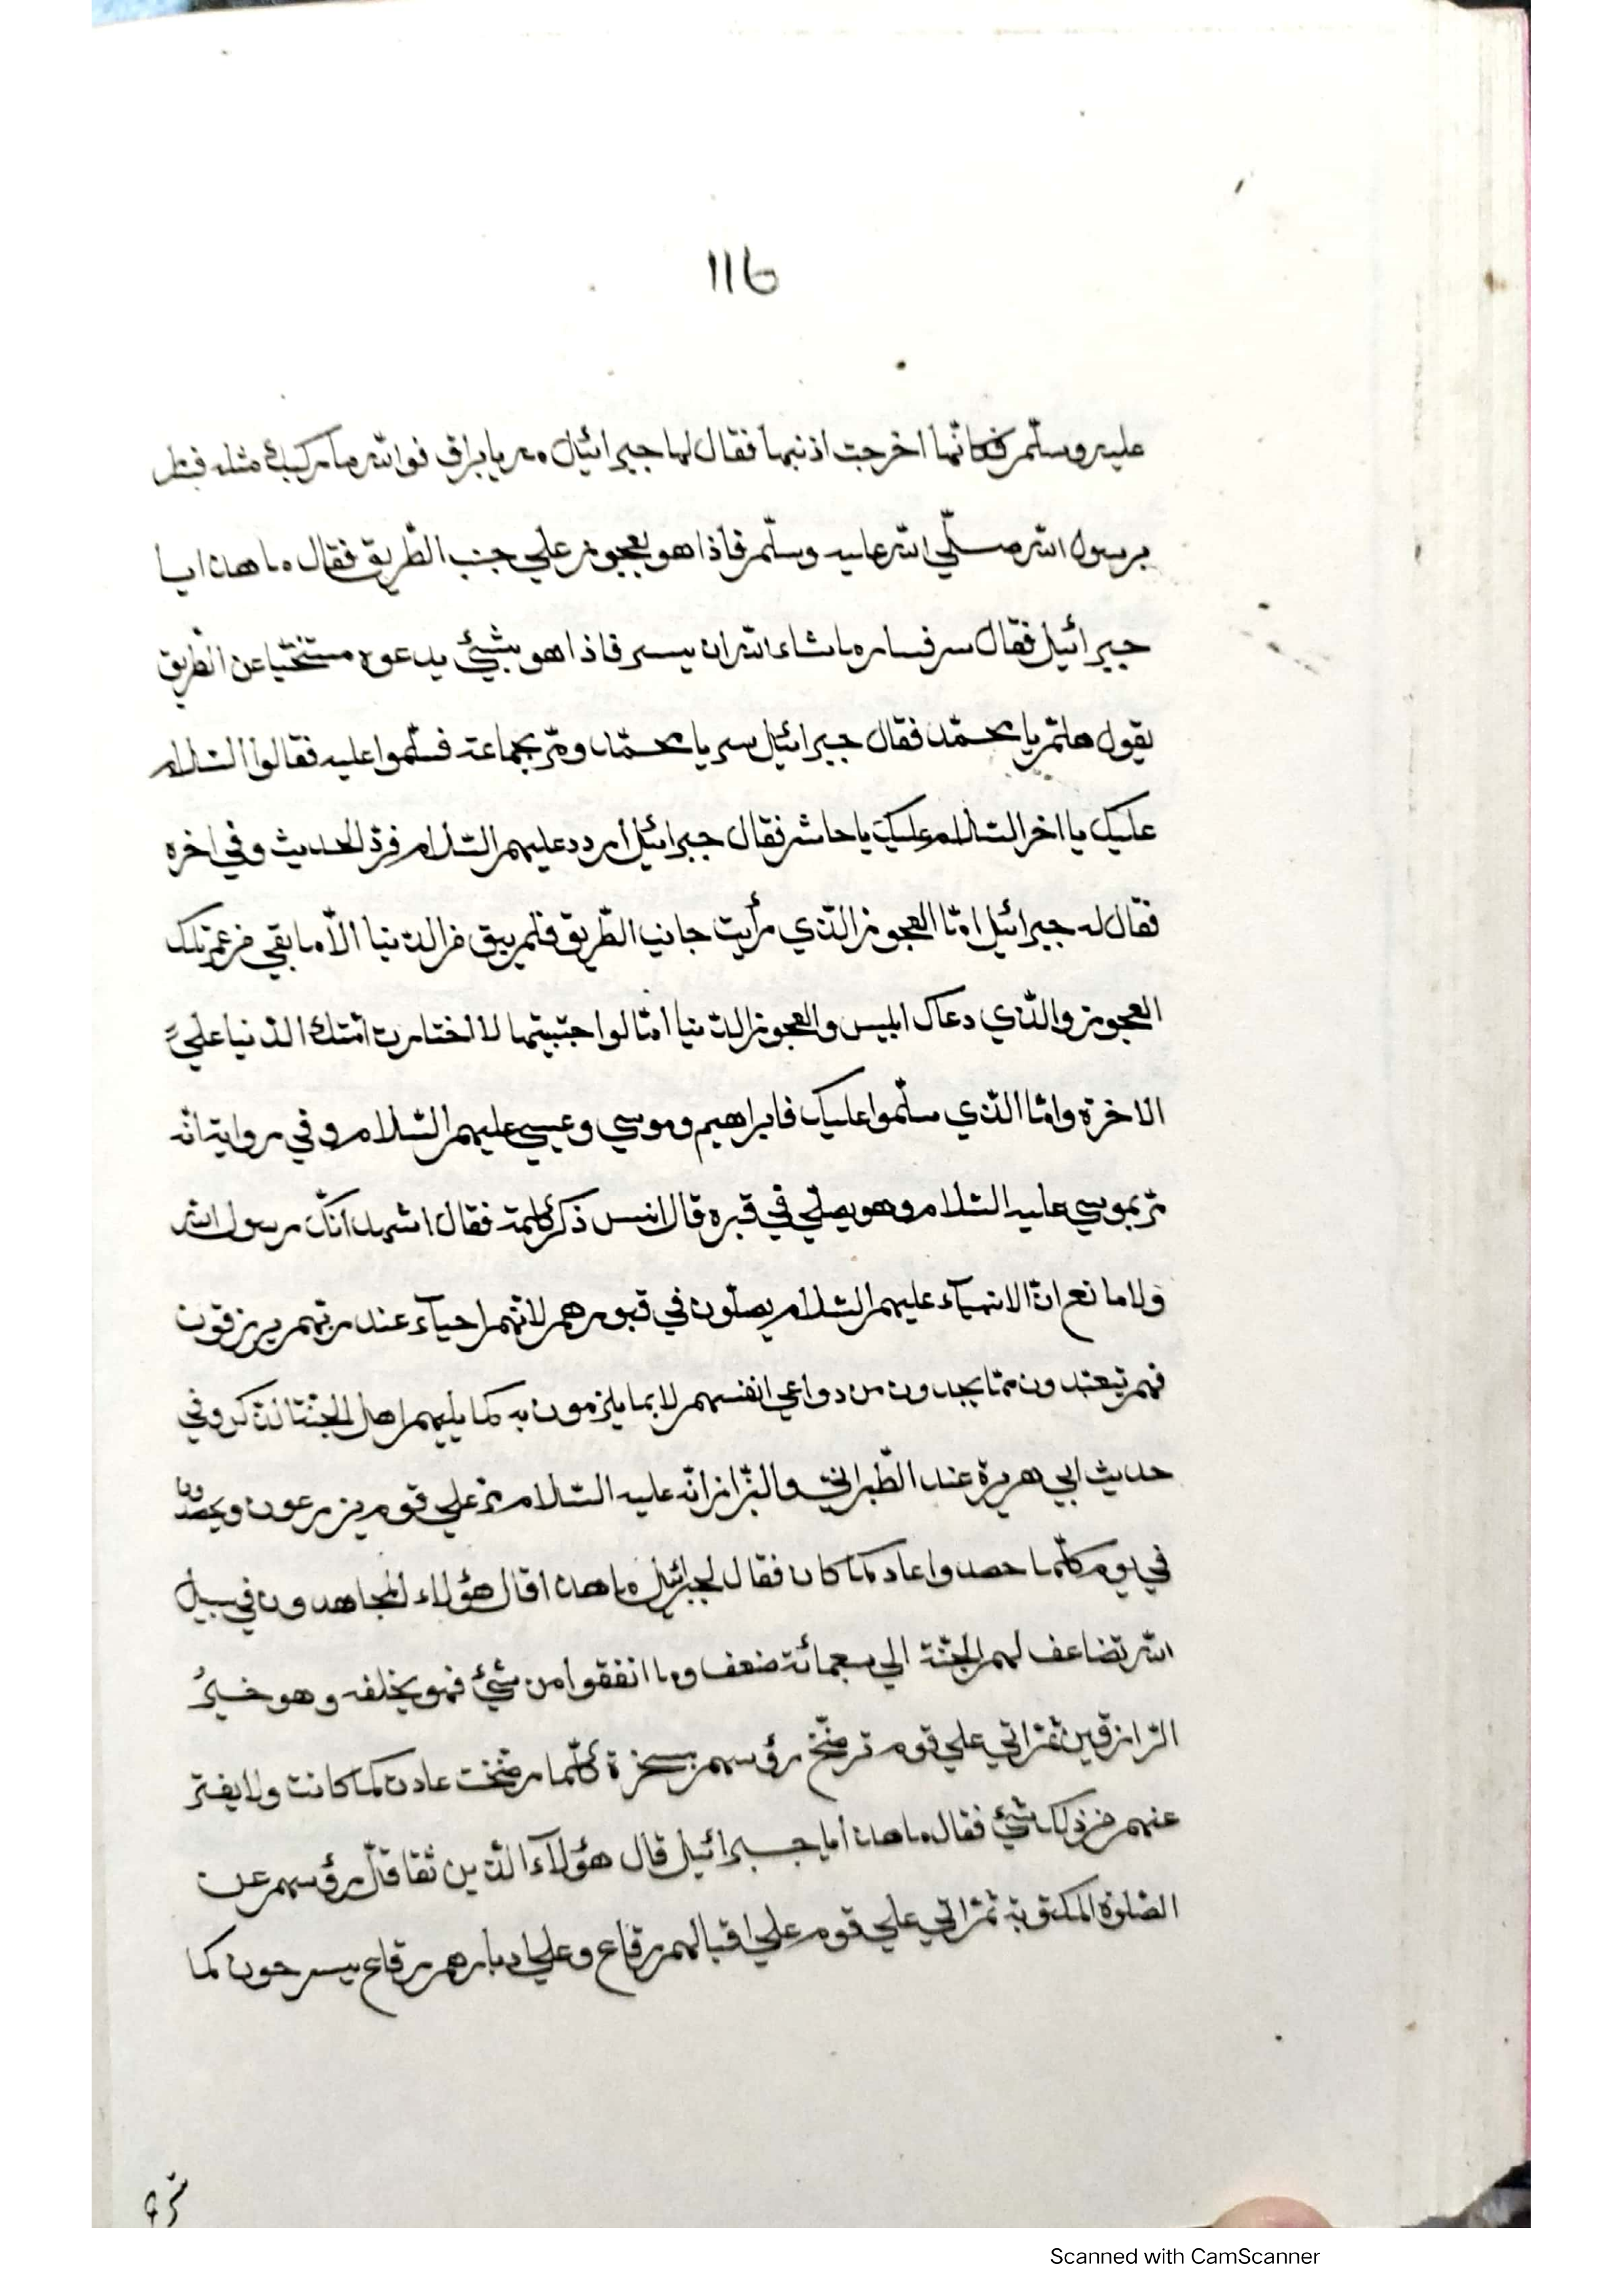 ١١٦
عليه وسلّم فكانّها اخرجت اذنيها فقال لها جبرائيل مه يا براق فوالله ما ركبك مثله فسار
برسول الله صلّي الله عليه وسلّم فاذا هو بعجوز علي جنب الطّريق فقال ما هذا يا
جبرائيل فقال سر فساره ماشاء الله ان يسير فاذا هو بشيئ يدعوه متنحّيا عن الطّريق
يقول هلمّ يا محمّد فقال جبرائيل سر يا محمّد ومرّ بجماعة فسلّموا عليه فقالوا السّلام
عليك يا اخر السّلام عليك يا حاشر فقال جبرائيل اردد عليهم السّلام فردّ الحديث وفي اخره
فقال له جبرائيل امّا العجوز الّذي رأيت جانب الطّريق فلم يبق من الدّنيا الّا ما بقي من عمر تلك
العجوز والّذي دعاك ابليس والعجوز الدّنيا امّا لو اجبتها لاختارت امّتك الدّنيا علي
الاخرة وامّا الّذي سلّموا عليك فابراهيم وموسي وعيسي عليهم السّلام وفي رواية انّه
مرّ بموسي عليه السّلام وهو يصلّي في قبره قال انس ذكر كلمة فقال اشهد انّك رسول الله
ولا مانع انّ الانبيآء عليهم السّلام يصلّون في قبورهم لانّهم احيآء عند ربّهم يرزقون
فهم تبعّدون ممّا يجدون من دواعي انفسهم لا بما يلزمون به كما يلهم اهل الجنّة الذّكر وفي
حديث ابي هريرة عند الطّبراني والبزّار انّه عليه السّلام مرّ علي قوم يزرعون ويحصدون
في يوم كلّما حصدوا عاد كما كان فقال لجبرائيل ما هذا قال هؤلاء المجاهدون في سبيل
الله تضاعف لهم الجنّة الي سبعمائة ضعف وما انفقوا من شيئ فهو يخلفه وهو خير
الرّازقين ثمّ اتي علي قوم ترضّخ رؤسهم بسخرة كلّما رضخت عادت كما كانت ولا يفتر
عنهم من ذلك شيئ فقال ما هذا يا جبرائيل قال هؤلآء الّذين تثاقل رؤسهم عن
الصّلوة المكتوبة ثمّ اتي علي قوم علي اقبالهم رقاع وعلي ادبارهم رقاع يسرحون كما